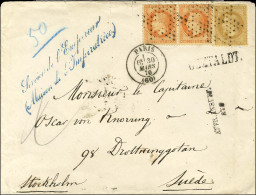 50
Service de l'Empereur
(Maison de l'Impératrice)
PARIS
30
MARS
(60)
Monsieur le Capitaine
Oscar von Knorring
98 Drottninggatan
Stockholm
Suède